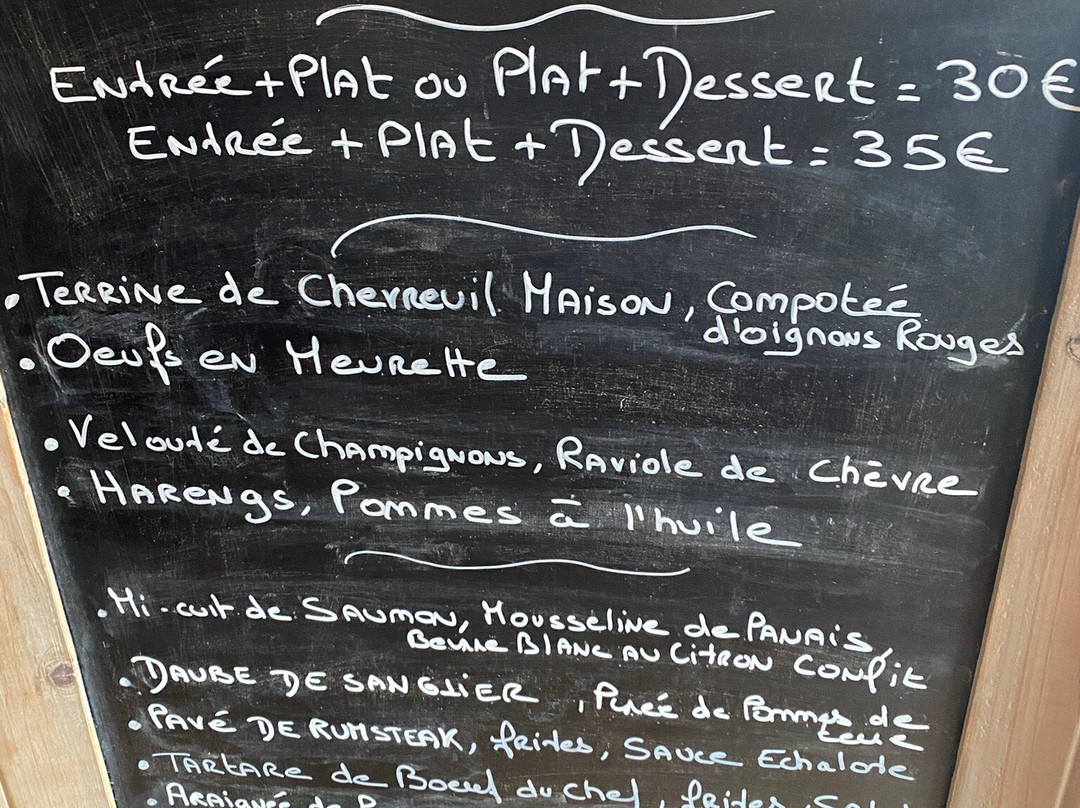 Entrée + Plat ou Plat + Dessert = 30 €
Entrée + Plat + Dessert = 35 €
• Terrine de Chevreuil Maison, Compoteé
d'oignons Rouges
• Oeufs en Meurette
• Velouté de Champignons, Raviole de Chèvre
• Harengs, Pommes à l'huile
• Mi-cuit de Saumon, Mousseline de Panais,
Beurre Blanc au Citron Confit
• DAUBE DE SANGLIER, Purée de Pommes de
terre
• PAVÉ DE RUMSTEAK, frites, Sauce Echalote
• Tartare de Boeuf du Chef, frites,
• Araignée de